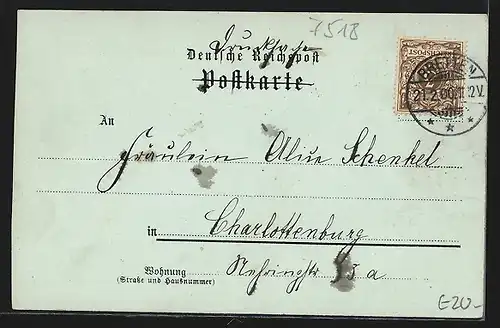 7518
Drucksache
Deutsche Reichspost
Postkarte
REICHSPOST
BRETTEN
21.2.00. 11-12V.
* * *
An
Fräulein Aline Schenkel
in Charlottenburg
Wohnung
(Straße und Hausnummer)
Nehringstr 3 a
E20-